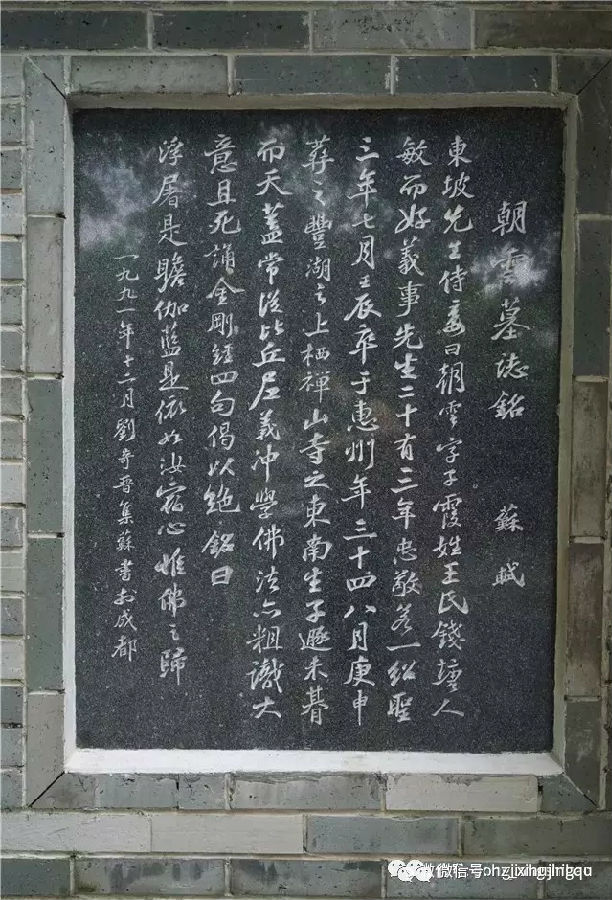 朝雲墓誌銘 蘇軾
東坡先生侍妾曰朝雲字子霞姓王氏錢塘人
敏而好義事先生二十有三年忠敬若一紹聖
三年七月壬辰卒于惠州年三十四八月庚申
葬之豐湖之上栖禪山寺之東南生子遯未朞
而夭蓋常從比丘尼義冲學佛法亦粗識大
意且死誦金剛經四句偈以絶銘曰
浮屠是瞻伽藍是依如汝宿心惟佛之歸
一九九一年十二月劉奇晋集蘇書於成都
微信号: